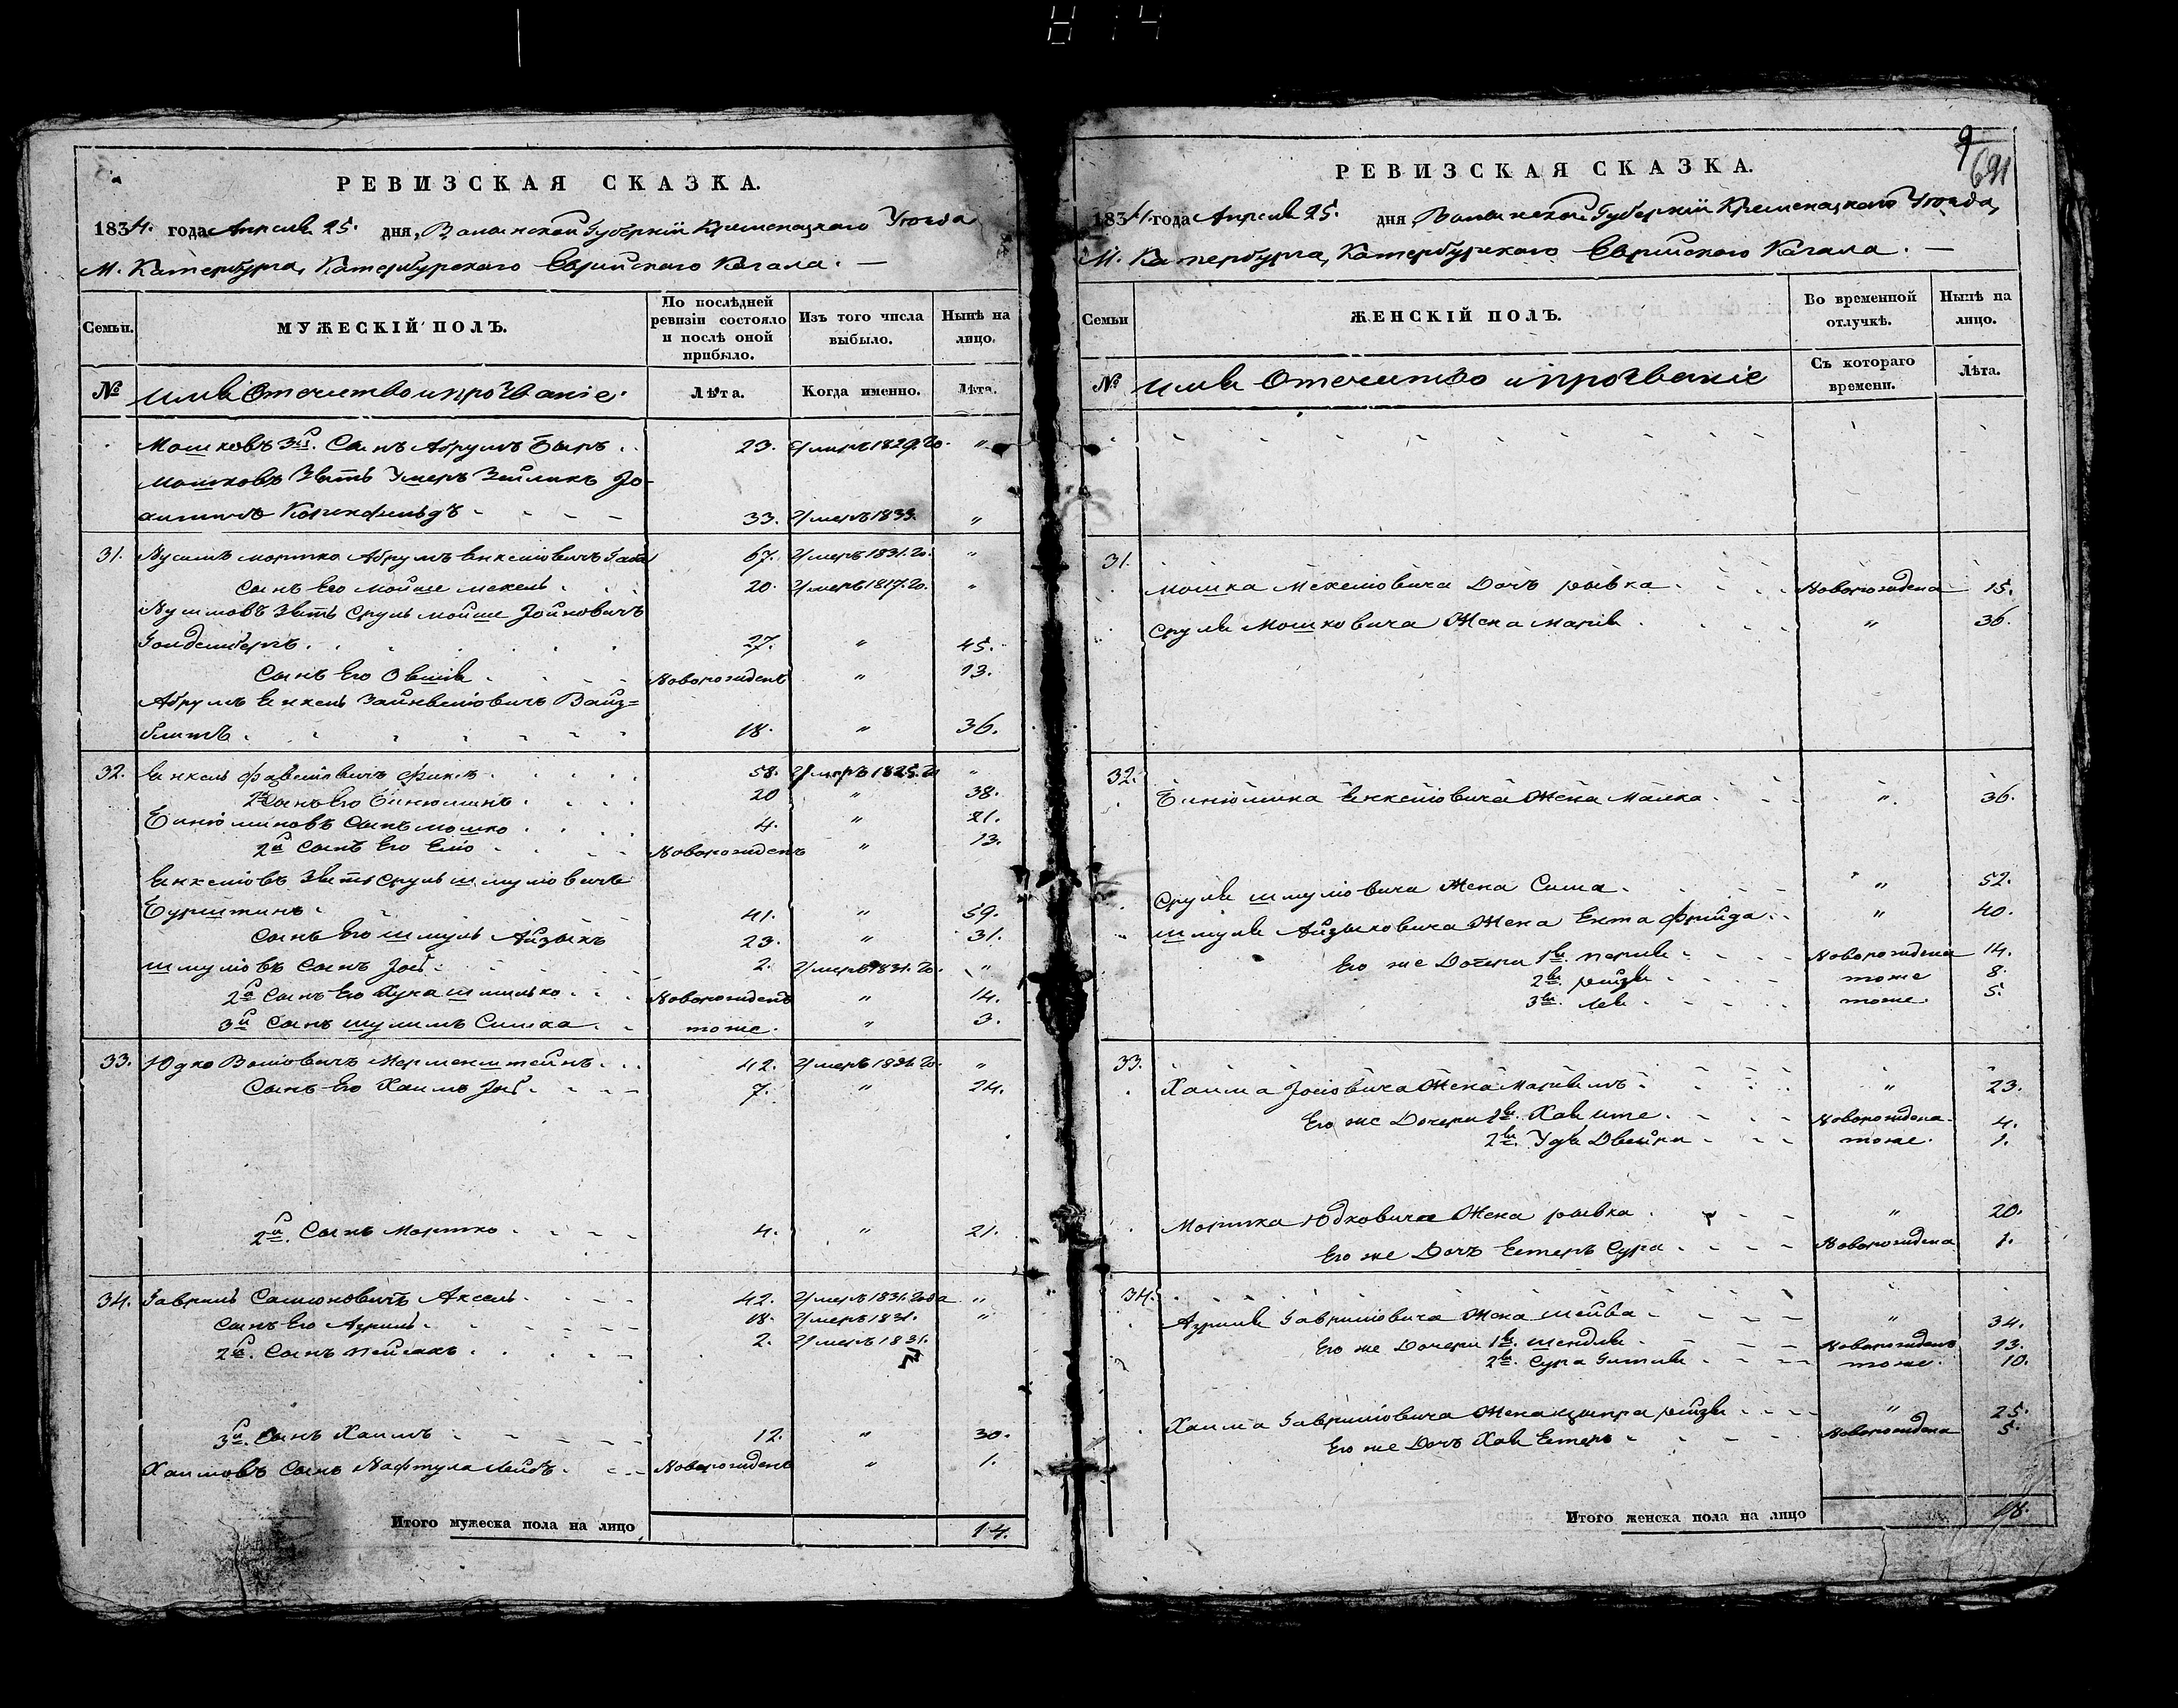 РЕВИЗСКАЯ СКАЗКА.
1834. года Апреля 25. дня, Волынской Губернiи Кременецкого Уезда
М. Катербурга, Катербурского Еврейского Кагала. —
Семьи. МУЖЕСКIЙ ПОЛЪ. По послѣдней ревизiи состояло и послѣ оной прибыло. Изъ того числа выбыло. Нынѣ на лицо.
№ Имя Отечество и прозванiе. Лѣта. Когда именно. Лѣта.
Мошковъ 3й. Сынъ Абрумъ Беръ 23. Умеръ 1829. го. "
Мошковъ Зять Умеръ Зейликъ
Корнфельдъ 33. Умеръ 1833. "
31. Нусимъ мортко Абрумъ Янкелiовичъ 67. Умеръ 1831. го. "
Сынъ Его Мойше мекель 20. Умеръ 1817. го. "
Нусимовъ Зять Сруль мойше
Гольденберъ 27. " 45.
Сынъ Его Овшiя Новорожденъ " 13.
Абрумъ Янкель Зайнвелiовичъ Вайз=
блитъ 18. " 36.
32. Янкель Файвелiовичъ Финкъ 58. Умеръ 1825. го "
2й Сынъ Его Бинюминъ 20 " 38.
Бинюминовъ Сынъ мошко 4. " 21.
2й Сынъ Его Елiо Новорожденъ " 13.
Янкелiовъ Зять Сруль шмулiовичъ
Бурштинъ 41. " 59.
Сынъ Его шмуль Айзыкъ 23. " 31.
шмулiовъ Сынъ Iосъ 2. Умеръ 1831. го. "
2й Сынъ Его Нуха шмилько Новорожденъ " 14.
3й Сынъ шулимъ Симха тоже. " 3.
33. Юдко Волiовичъ Мерменштейнъ 42. Умеръ 1831. го. "
Сынъ Его Хаимъ Iосъ 7. " 24.
2й. Сынъ Мортко 4. " 21.
34. Гавриль Самоновичъ Аксель 42. Умеръ 1831. года "
Сынъ Его Азриль 18. Умеръ 1831. "
2й. Сынъ Пейсакъ 2. Умеръ 1831.
3й. Сынъ Хаимъ 12. " 30.
Хаимовъ Сынъ Нафтула Лейбъ Новорожденъ " 1.
Итого мужеска пола на лицо 14.
9
691
РЕВИЗСКАЯ СКАЗКА.
1834. года Апреля 25. дня, Волынской Губернiи Кременецкого Уезда,
М. Катербурга, Катербурского Еврейского Кагала. —
Семьи ЖЕНСКIЙ ПОЛЪ. Во временной отлучкѣ. Нынѣ на лицо.
№ Имя Отечество и прозванiе Съ котораго времени. Лѣта.
31.
мошка Мекелiовича Дочъ рывка Новорождена 15.
Сруля Мошковича Жена Марiя " 36.
32.
Бинюмина Янкелiовича Жена Малка " 36.
Сруля шмулiовича Жена Сима " 52.
шмуля Айзыковича Жена Ента Фрейда " 40.
Его же Дочери 1я. перля Новорождена 14.
2я. рейзя тоже 8.
3я. Лея тоже. 5.
33.
Хаима Iосiовича Жена Марiямъ " 23.
Его же Дочери 1я. Хая ите Новорождена 4.
2я. Удя Двейра тоже. 1.
Мортка Юдковича Жена рывка " 20.
Его же Дочъ Естеръ Сура Новорождена 1.
34.
Азриля Гаврилiовича Жена шейва " 34.
Его же Дочери 1я. шендля Новорожденъ 13.
2я. Сура Гитля тоже. 10.
Хаима Гаврилiовича Жена ципра рейзя " 25.
Его же Дочъ Хая Естеръ Новорождена 5.
Итого женска пола на лицо 18.